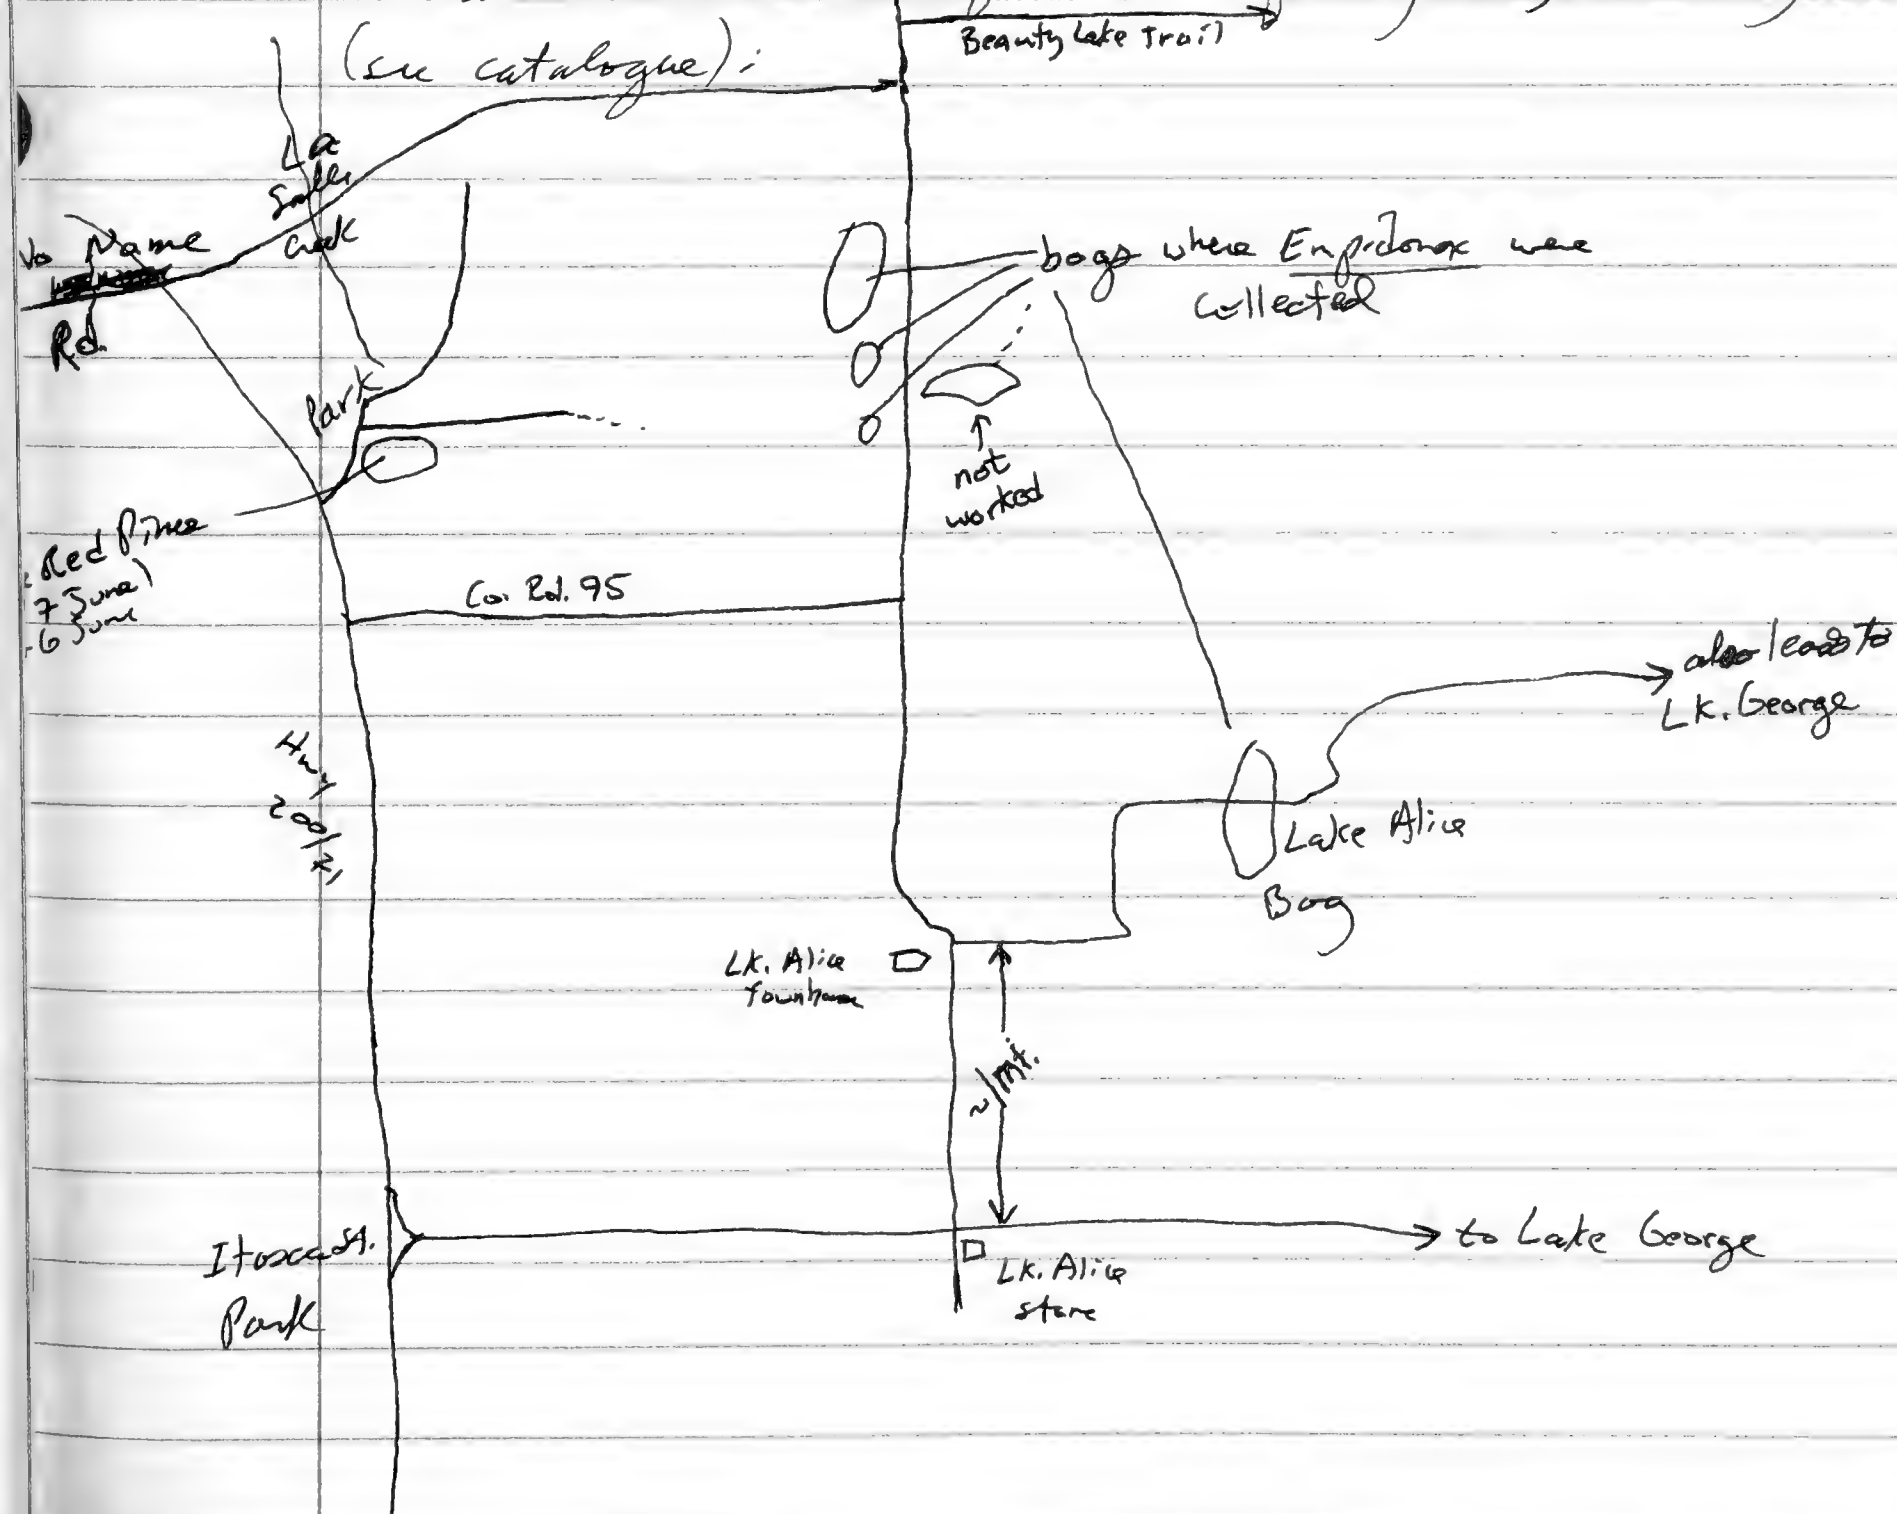 Beauty Lake Trail
(see catalogue):
La
Salle
Creek
No Name
Rd.
bogs where Empidonax were
collected
Park
not
worked
Red Pine
7 June)
6 June
Co. Rd. 95
also leads to
Lk. George
Hwy
200/71
Lake Alice
Bog
Lk. Alice
Townhome
~1 mi.
Itasca St.
Park
to Lake George
Lk. Alice
store